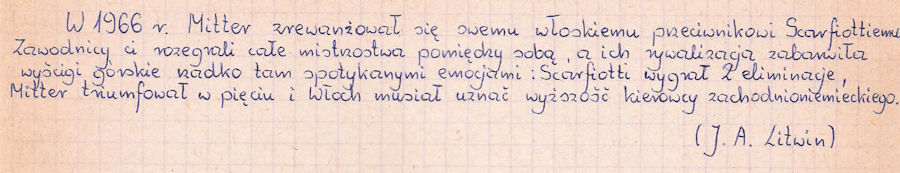 W 1966 r. Mitter zrewanżował się swemu włoskiemu przeciwnikowi Scarfiottiemu
Zawodnicy ci rozegrali całe mistrzostwa pomiędzy sobą, a ich rywalizacja zabarwiła
wyścigi górskie rzadko tam spotykanymi emocjami : Scarfiotti wygrał 2 eliminacje,
Mitter triumfował w pięciu i Włoch musiał uznać wyższość kierowcy zachodnioniemieckiego.
(J. A. Litwin)